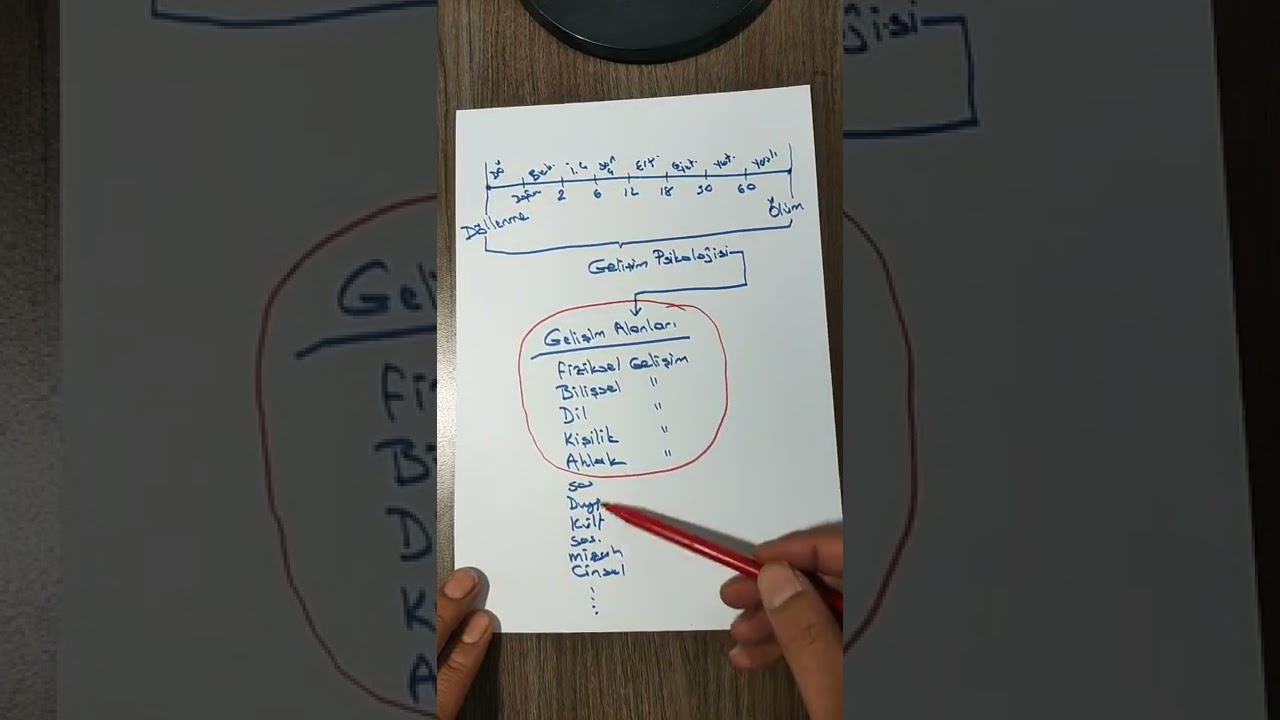 Bebe. i.ç Erg. Yet. Yaşlı
Doğum 2 6 12 18 30 60
Döllenme Ölüm
Gelişim Psikolojisi
Gelişim Alanları
Fiziksel Gelişim
Bilişsel "
Dil "
Kişilik "
Ahlak "
Duyg
Kült
Sos.
mizah
Cinsel